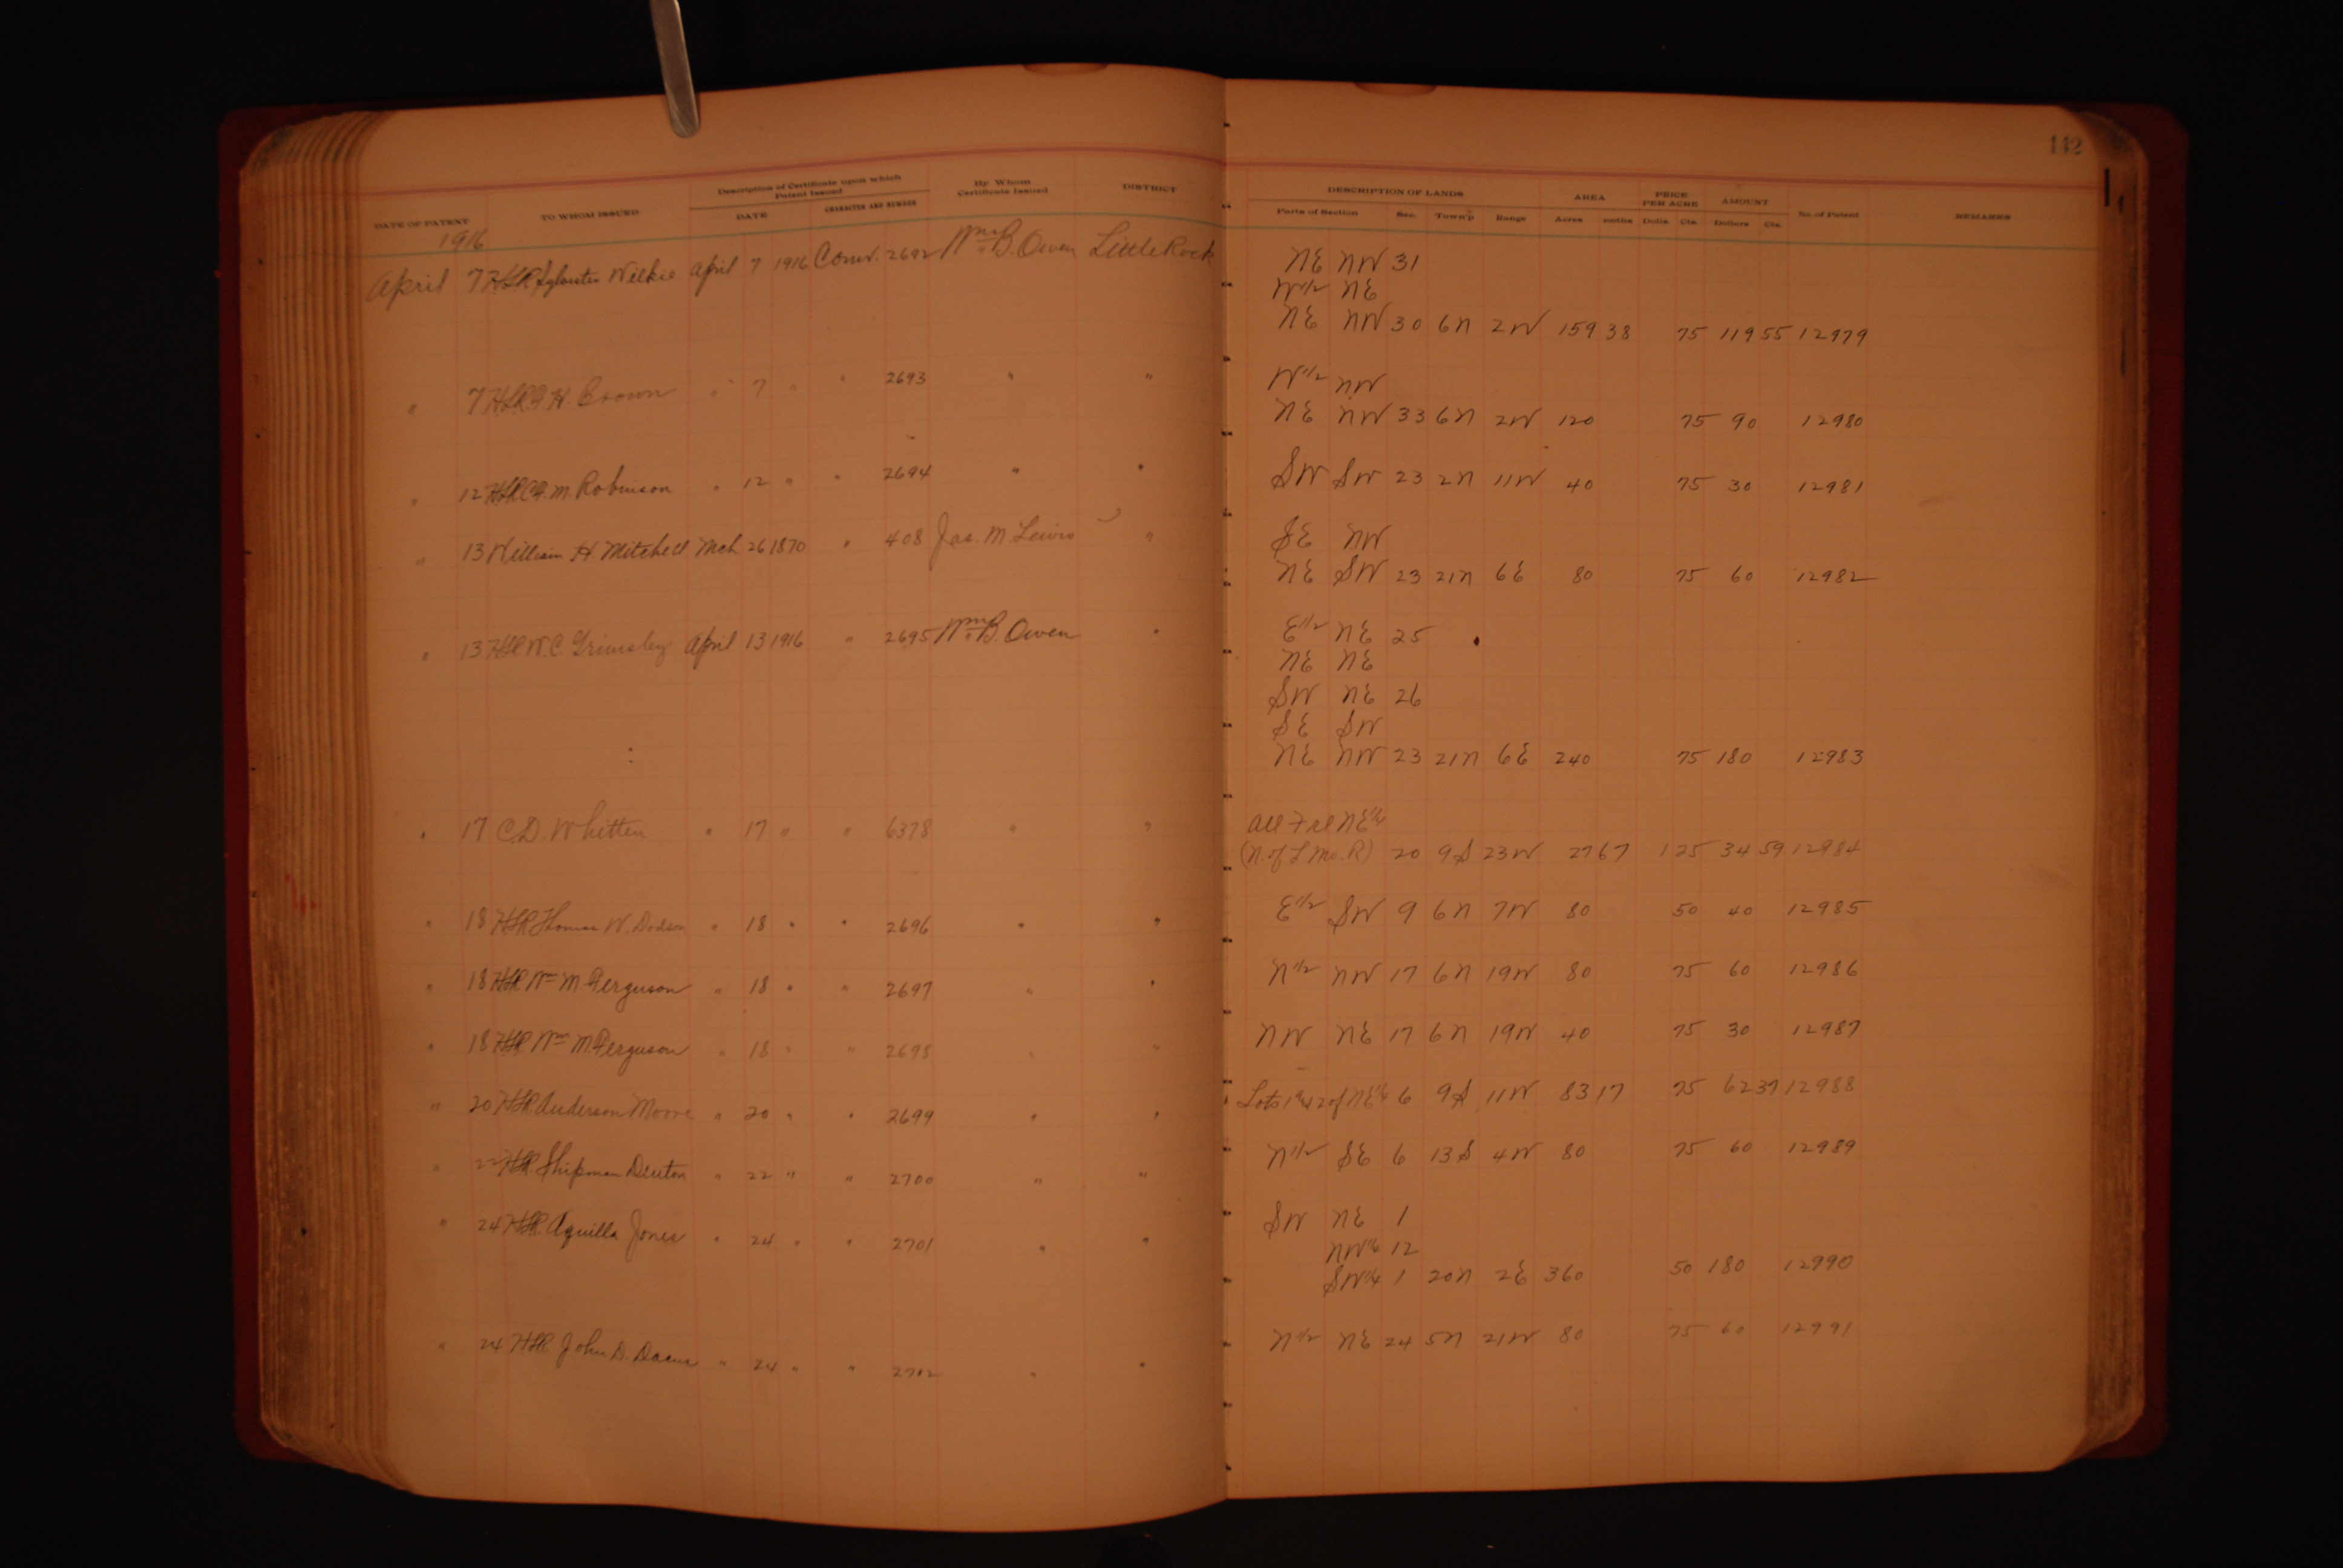 142
Description of Certificate upon which Patent Issued
By Whom Certificate Issued
DISTRICT
DESCRIPTION OF LANDS
AREA
PRICE PER ACRE
AMOUNT
No of Patent
REMARKS
DATE OF PATENT
TO WHOM ISSUED
DATE
CHARACTER AND NUMBER
Parts of Section Sec. Town'p Range Acres 100ths Dolls. Cts. Dollars Cts.
1916
April 7 Sylvester Wilkie April 7 1916 Conv. 2692 Wm B. Owen Little Rock NE NW 31
W 1/2 NE
NE NW 30 6N 2W 159 38 75 119 55 12979
" 7 H. Brown " 7 " " 2693 " " W 1/2 NW
NE NW 33 6N 2W 120 75 90 12980
" 12 M. Robinson " 12 " " 2694 " " SW SW 23 2N 11W 40 75 30 12981
" 13 William H Mitchell Mch 26 1870 " 408 Jas. M. Lewis " SE NW
NE SW 23 21N 6E 80 75 60 12982
" 13 W.C. Grimsley April 13 1916 " 2695 Wm B. Owen " E 1/2 NE 25
NE NE
SW NE 26
SE SW
NE NW 23 21N 6E 240 75 180 12983
" 17 C.D. Whitten " 17 " " 6378 " " All Frl NE 1/4
(N. of L Mo. R) 20 9S 23W 27 67 1 25 34 59 12984
" 18 Thomas W. Dodson " 18 " " 2696 " " E 1/2 SW 9 6N 7W 80 50 40 12985
" 18 Wm M Ferguson " 18 " " 2697 " " N 1/2 NW 17 6N 19W 80 75 60 12986
" 18 Wm M Ferguson " 18 " " 2698 " " NW NE 17 6N 19W 40 75 30 12987
" 20 Anderson Moore " 20 " " 2699 " " Lots 1 & 2 of NE 1/4 6 9S 11W 83 17 75 62 37 12988
" 22 Shipman Denton " 22 " " 2700 " " N 1/2 SE 6 13S 4W 80 75 60 12989
" 24 Aquilla Jones " 24 " " 2701 " " SW NE 1
NW 1/4 12
SW 1/4 1 20N 2E 360 50 180 12990
" 24 John D. " 24 " " 2702 " " N 1/2 NE 24 5N 21W 80 75 60 12991